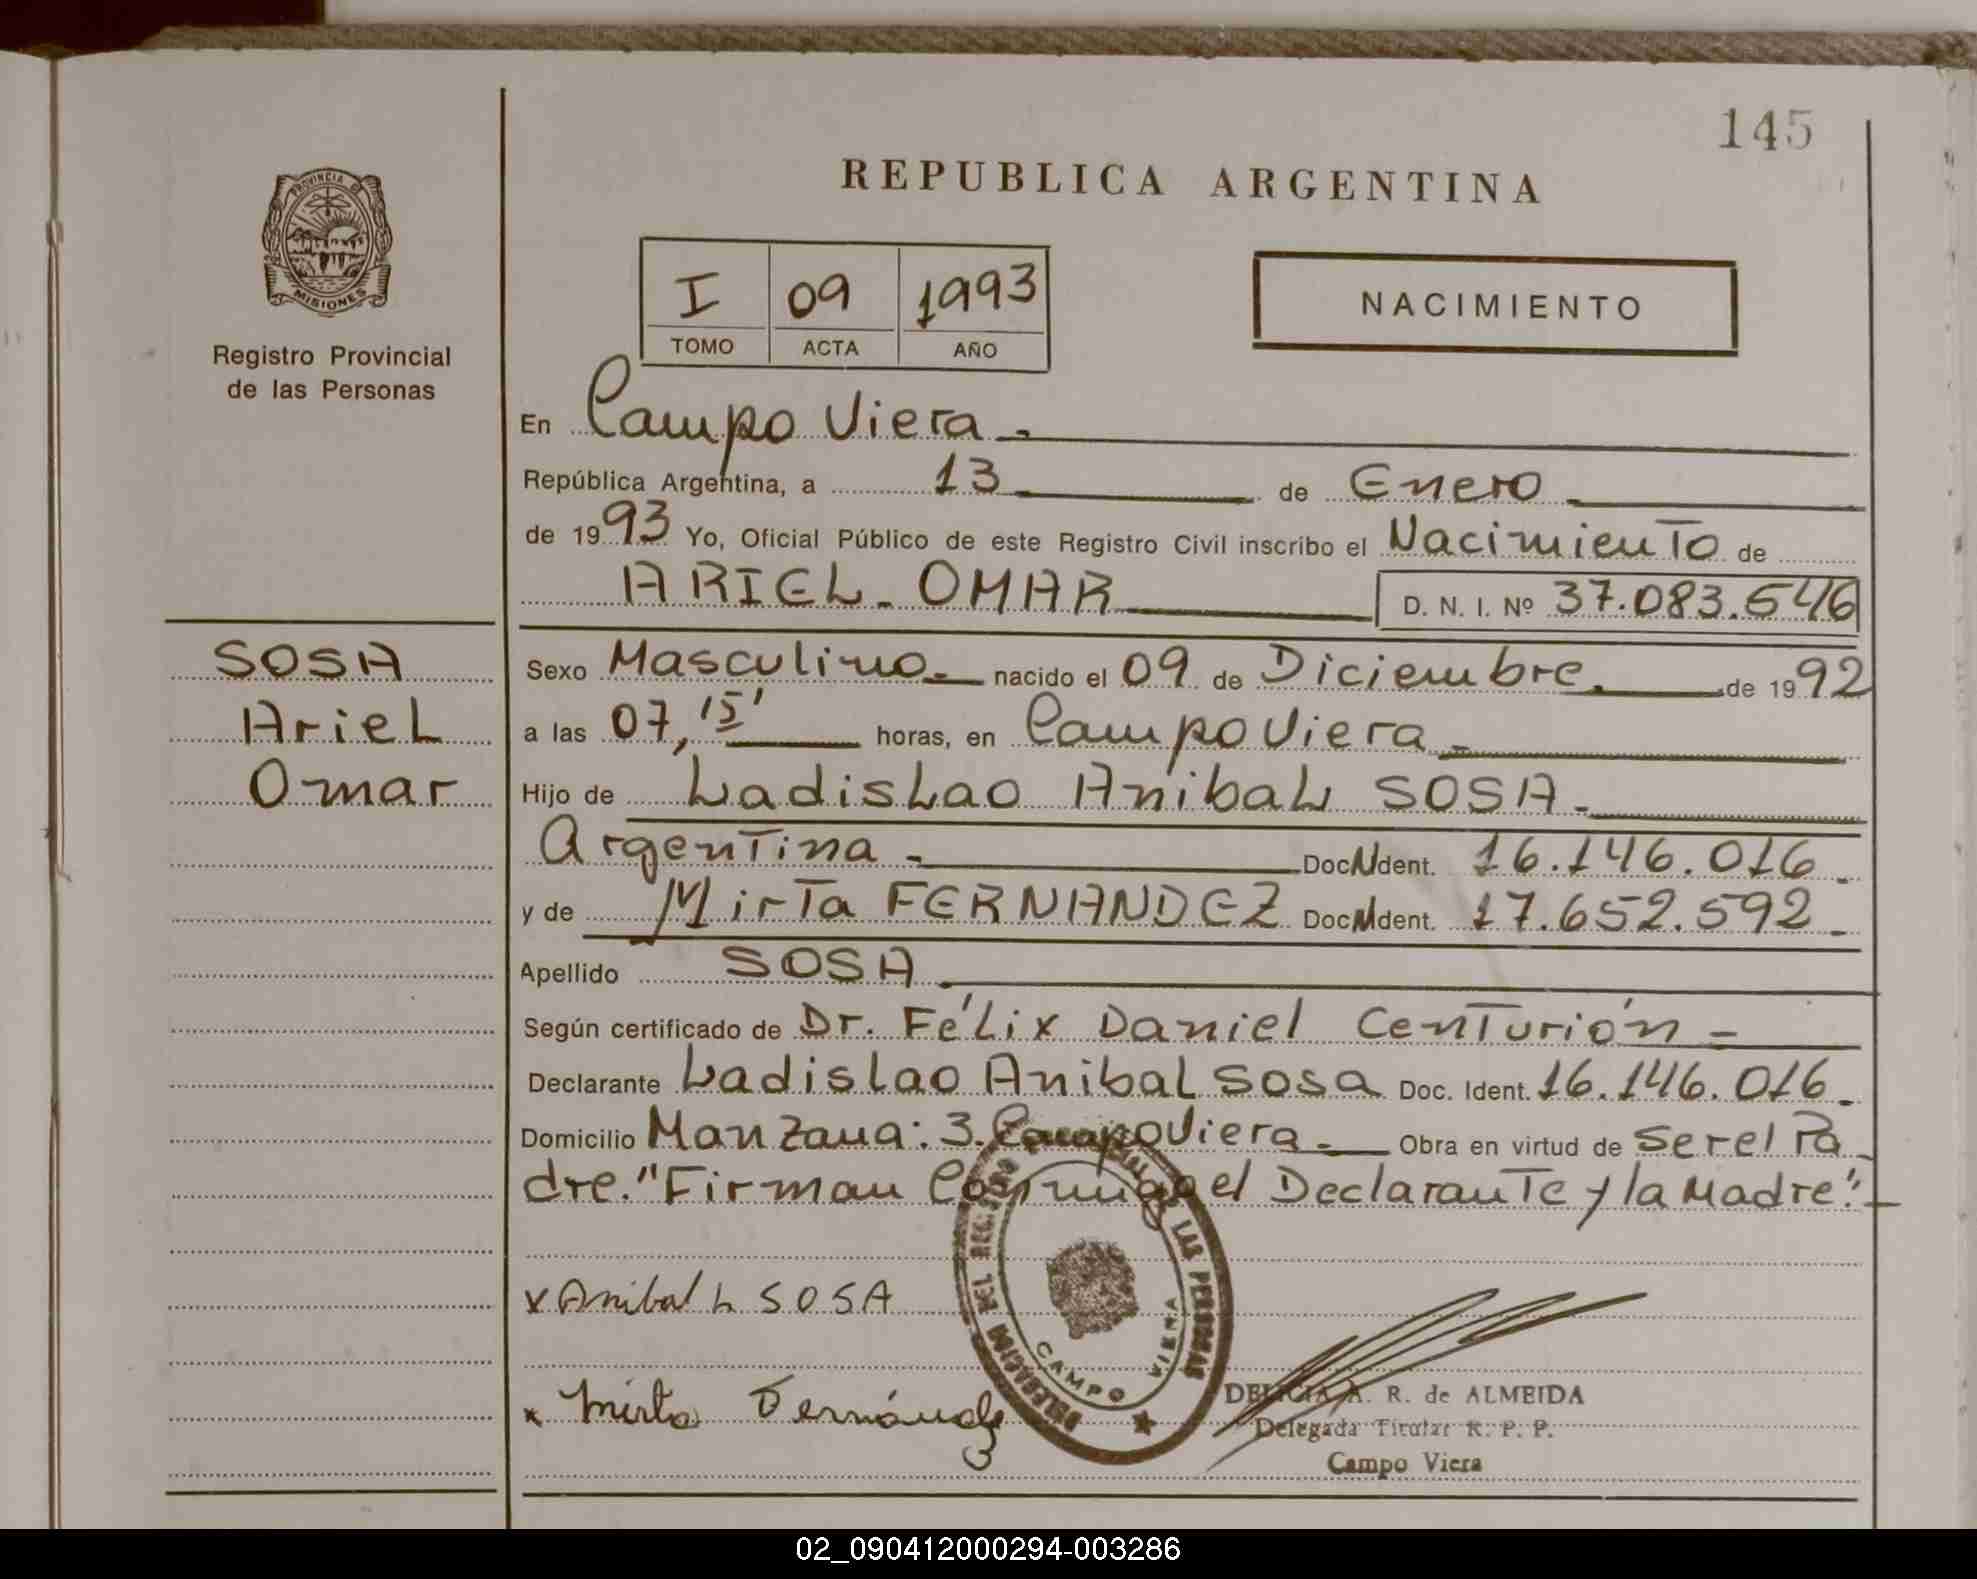 145
REPUBLICA ARGENTINA
PROVINCIA DE
MISIONES
Registro Provincial
de las Personas
I 09 1993
TOMO ACTA AÑO
NACIMIENTO
En Campo Viera.
República Argentina, a 13 de Enero
de 1993 Yo, Oficial Público de este Registro Civil inscribo el Nacimiento de
ARIEL OMAR D. N. I. Nº 37.083.546
SOSA
Ariel
Omar
Sexo Masculino. nacido el 09 de Diciembre. de 1992
a las 07,15' horas, en Campo Viera
Hijo de Ladislao Anibal SOSA.
Argentina - Doc. Ident. 16.146.016.
y de Mirta FERNANDEZ Doc. Ident. 17.652.592.
Apellido SOSA
Según certificado de Dr. Félix Daniel Centurión =
Declarante Ladislao Anibal Sosa Doc. Ident. 16.146.016.
Domicilio Manzana: 3. Campo Viera. Obra en virtud de ser el Pa
dre. "Firman Conmigo el Declarante y la Madre".
x Anibal L SOSA
x Mirta Fernández
DELEGACION DEL REGISTRO PROVINCIAL DE LAS PERSONAS
CAMPO VIERA
DELICIA A. R. de ALMEIDA
Delegada Titular R. P. P.
Campo Viera
02_090412000294-003286